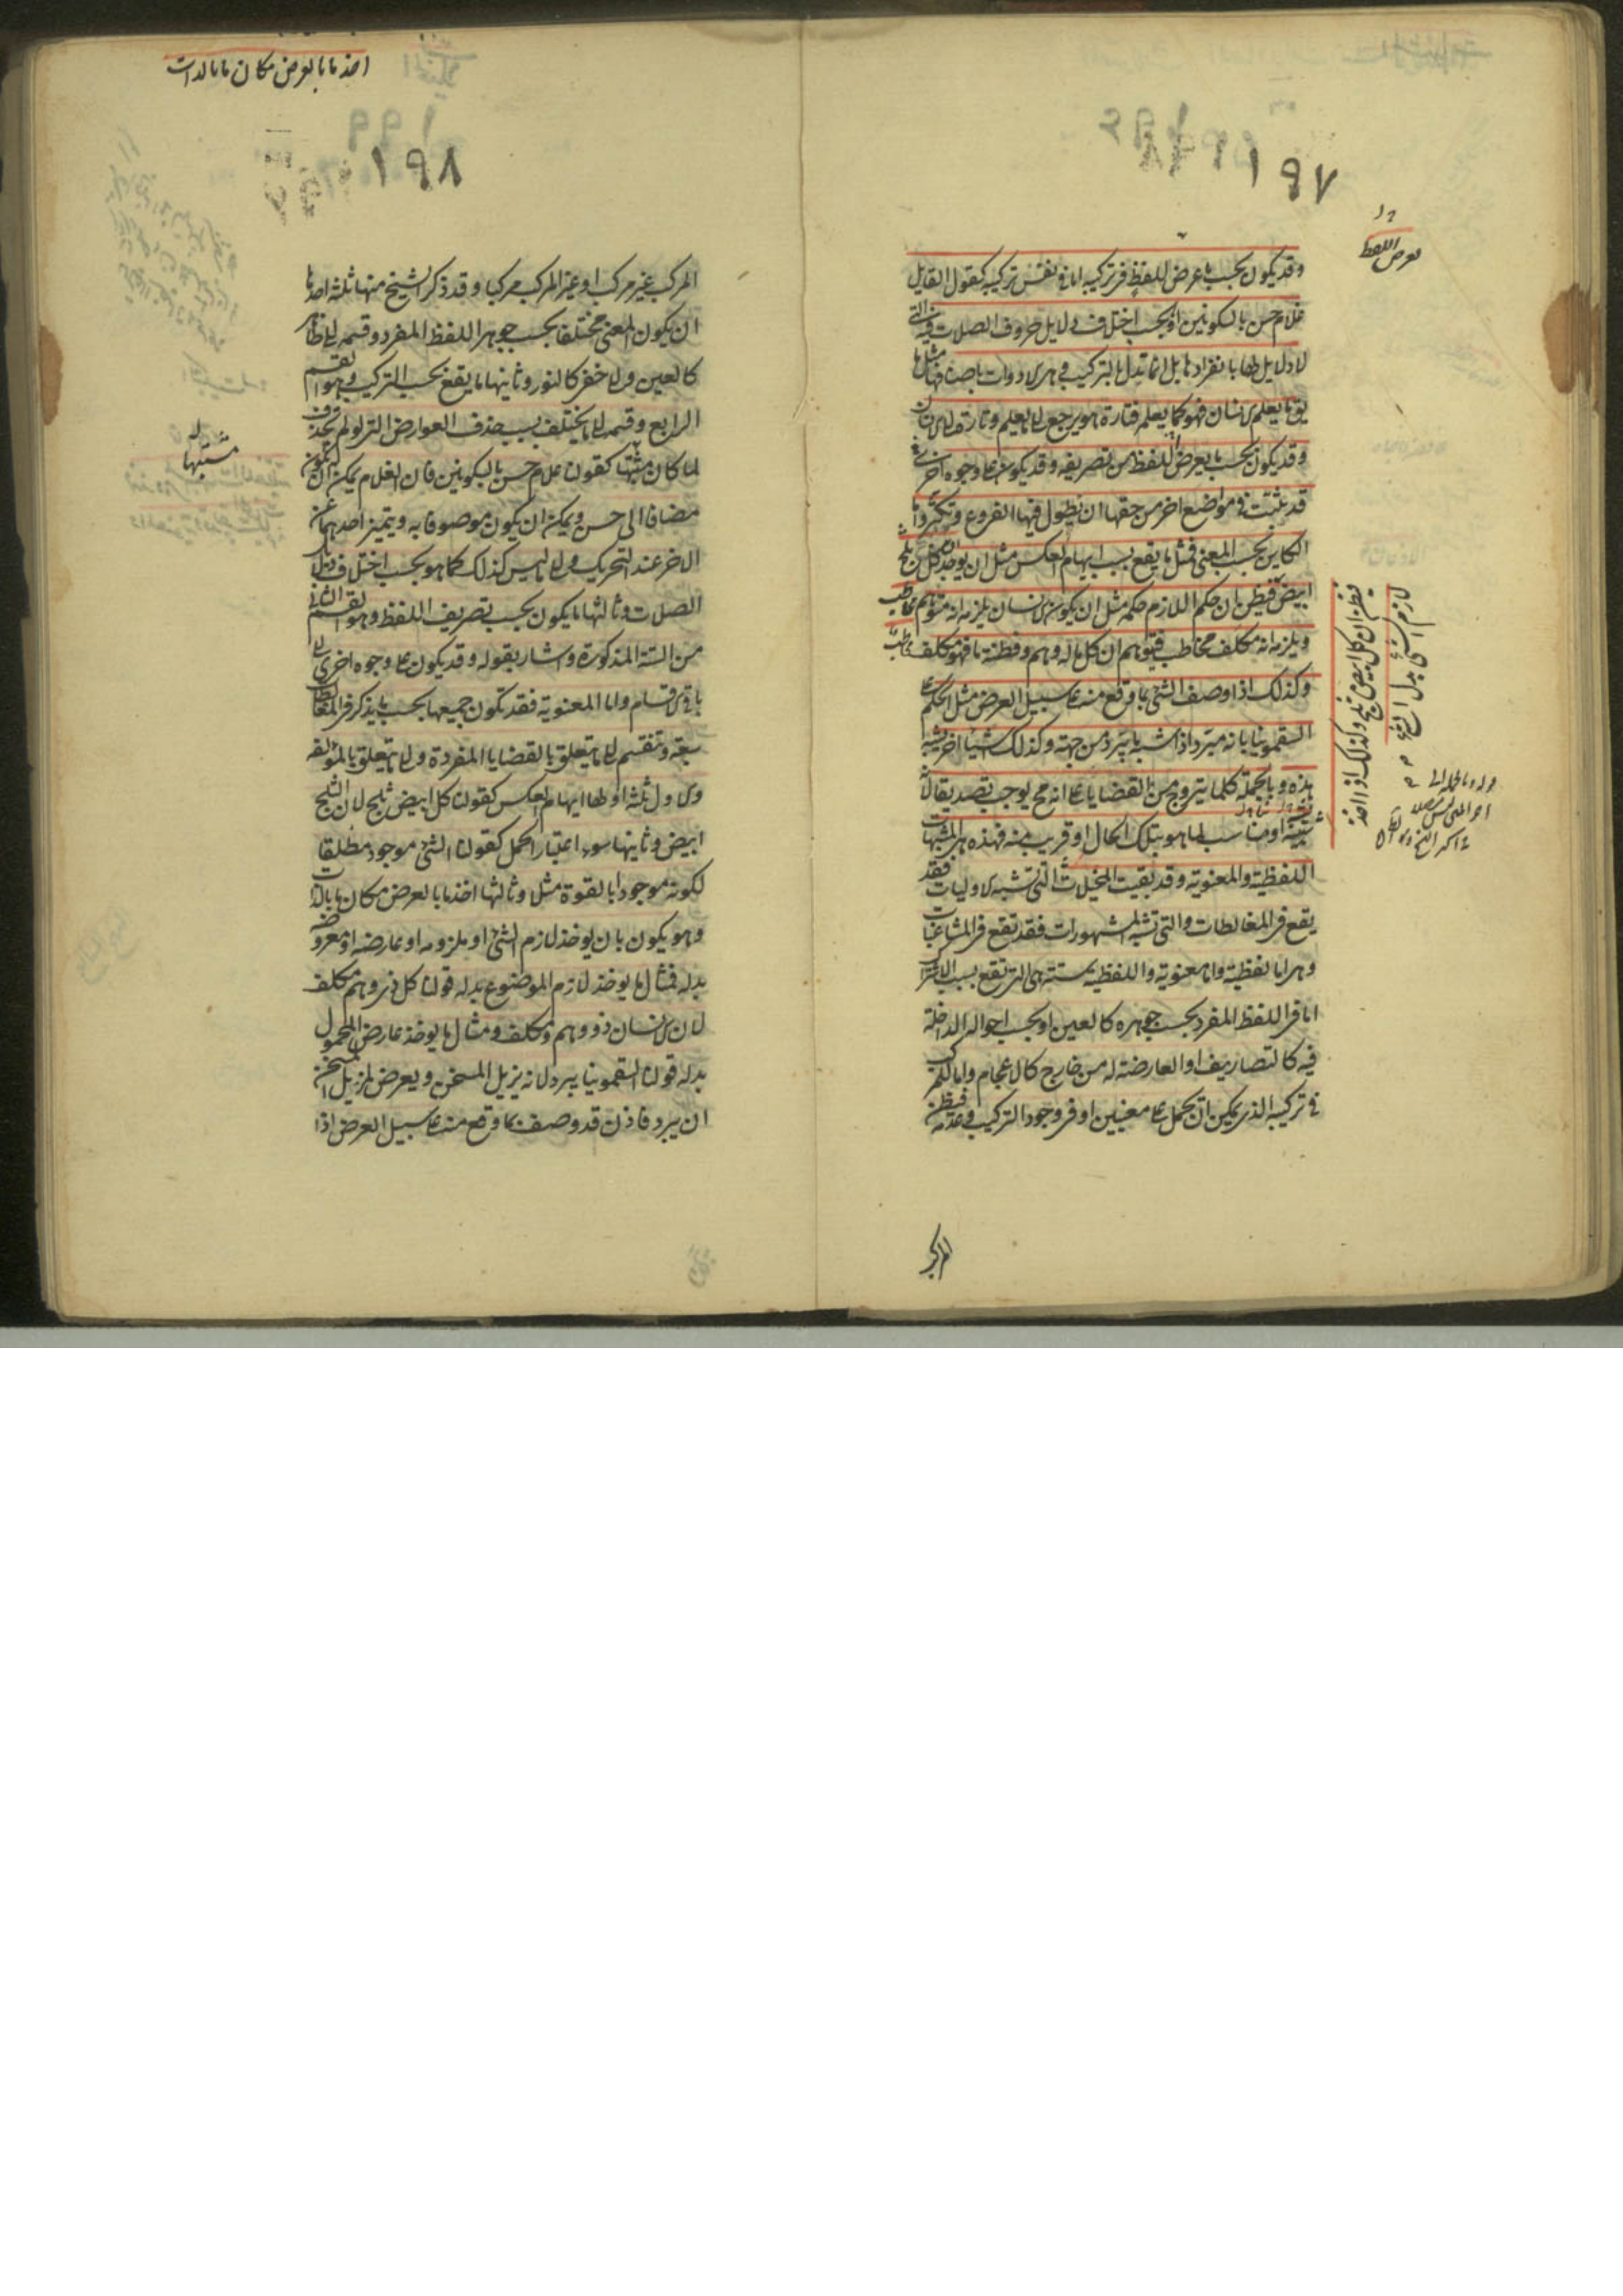 ١٩٧
وقد يكون بحسب ما عرض للفظ فى تركيبه اما فى نفس تركيبه كقول القايل
غلام حسن بالسكونين او بحسب اختلاف دلايل حروف الصلات فيه التى
لا دلايل لها بانفرادها بل انما تدل بالتركيب وهى الادوات باصنافها مثل ما
يق ما يعلم الانسان فهو كما يعلمه فتارة هو يرجع الى ما يعلم وتارة الى الانسان
وقد يكون بحسب ما يعرض للفظ من تصريفه وقد يكون على وجوه اخرى
قد بينت فى مواضع اخر من حقها ان يطول فيها الفروع وتكثر واما
الكاين بحسب المعنى فمثل ما يقع بسبب ايهام العكس مثل ان يوخذ كل ثلج
ابيض فيظن ان حكم اللازم حكمه مثل ان يكون الانسان يلزمه انه متوهم
ويلزمه انه مكلف مخاطب فيتوهم ان كل ما له وهم وفطنة ما فهو مكلف
وكذلك اذا وصف الشئ بما وقع منه على سبيل العرض مثل الحكم على
السقمونيا بانه مبرد اذ اشبه ما يبرد من جهته وكذلك اشياء اخر تشبه
هذه وبالجملة كلما يتروج من القضايا على انه مح يوجب تصديقا لانه
شبيه او مناسب لما هو بتلك الحال او قريب منه فهذه هى المشبهات
اللفظية والمعنوية وقد بقيت المخيلات التى تشبه الاوليات فقد
يقع فى المغالطات والتى تشبه المشهورات فقد تقع فى المشاغبات
وهى اما لفظية واما معنوية واللفظية ستة هى التى تقع بسبب الاشتراك
اما فى اللفظ المفرد بحسب جوهره كالعين او بحسب احواله الداخلة
فيه كالتصاريف او العارضة له من خارج كالاعجام واما للمركب
فى تركيبه الذى يمكن ان يحمل على معنيين او فى وجود التركيب وعدمه فيظن
المركب
يعرض اللفظ
فيظن ان كل ابيض ثلج وكذلك اذا اخذ
لازم الشئ بدل الشئ
١٩٨
اخذ ما بالعرض مكان ما بالذات
المركب غير مركب او غير المركب مركبا وقد ذكر الشيخ منها ثلثه احدها
ان يكون المعنى مختلفا بحسب جوهر اللفظ المفرد وقسمه الى ظاهر
كالعين والى خفى كالنور وثانيها ما يقع بحسب التركيب وهو القسم
الرابع وقسمه الى ما يختلف بسبب حذف العوارض التى لو لم تحذف
لما كان مشتبها كقولنا غلام حسن بالسكونين فان الغلام يمكن ان يكون
مضافا الى حسن ويمكن ان يكون موصوفا به ويتميز احدهما عن
الاخر عند التحريك والى ما ليس كذلك كما هو بحسب اختلاف دلايل
الصلات وثالثها ما يكون بحسب تصريف اللفظ وهو القسم الثانى
من الستة المذكورة واشار بقوله وقد يكون على وجوه اخرى الى
باقى الاقسام واما المعنوية فقد تكون جميعها بحسب ما يذكر فى المغالطات
سبعة وتنقسم الى ما يتعلق بالقضايا المفردة والى ما يتعلق بالمؤلفه
والاول ثلثة اولها ايهام العكس كقولنا كل ابيض ثلج لان الثلج
ابيض وثانيها سوء اعتبار الحمل كقولنا الشئ موجود مطلقا
لكونه موجودا بالقوة مثلا وثالثها اخذ ما بالعرض مكان ما بالذات
وهو يكون بان يوخذ لازم الشئ او ملزومه او عارضه او معروضه
بدله فمثال ما يوخذ لازم الموضوع بدله قولنا كل ذى وهم مكلف
لان الانسان ذو وهم ومكلف ومثال ما يوخذ عارض المحمول
بدله قولنا السقمونيا يبرد لانه يزيل المسخن ويعرض لمزيل المسخن
ان يبرد فاذن قد وصف بما وقع منه على سبيل العرض اذا
مشتبها